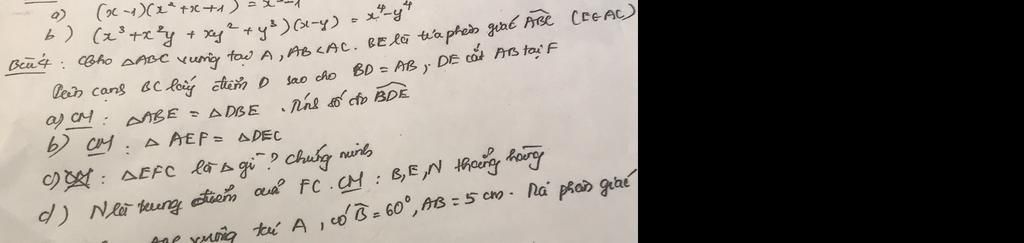 a) (x-1)(x²+x+1) = x³-1
b) (x³+x²y + xy² + y³)(x-y) = x⁴-y⁴
Bài 4: Cho △ABC vuông tại A, AB<AC. BE là tia phân giác ABC (E∈AC)
Trên cạnh BC lấy điểm D sao cho BD = AB, DE cắt AB tại F
a) CM: △ABE = △DBE. Tính số đo BDE
b) CM: △AEF = △DEC
c) CM: △EFC là △ gì? Chứng minh
d) N là trung điểm của FC. CM: B,E,N thẳng hàng
ABC vuông tại A, có B = 60°, AB = 5 cm. Tia phân giác